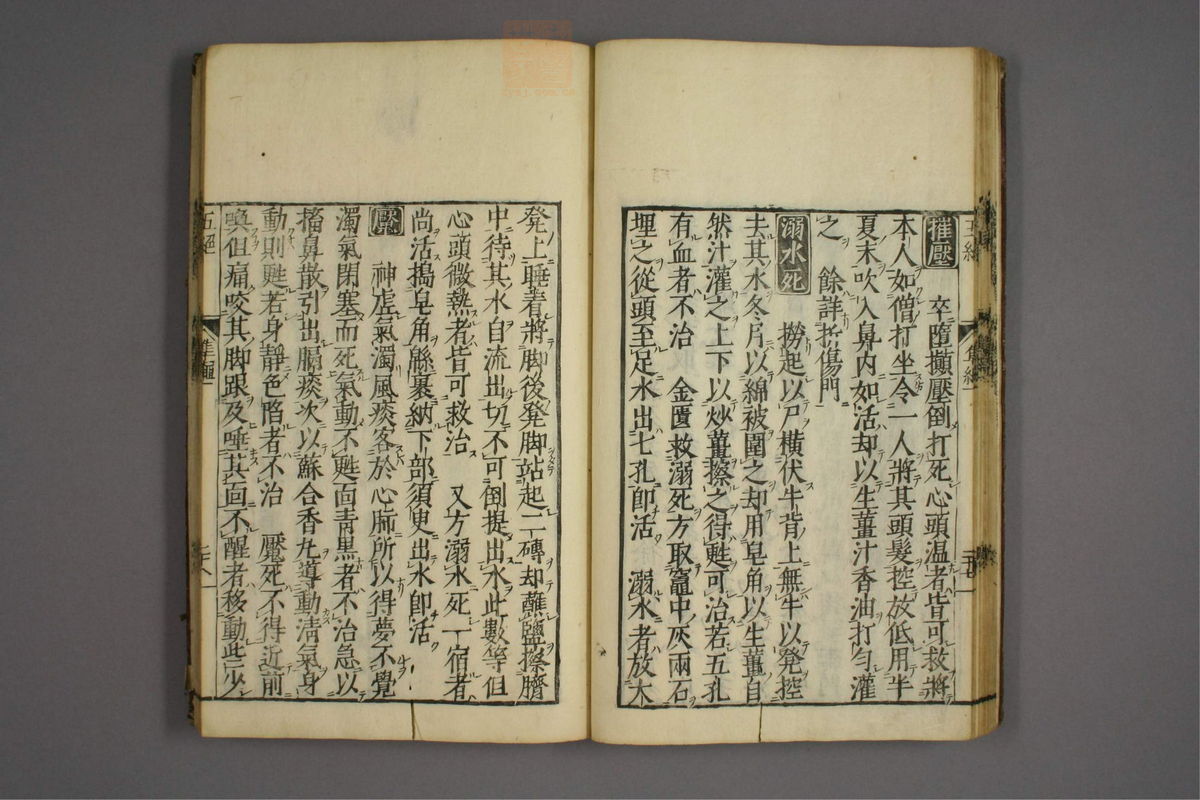 摧壓
卒墮攧壓倒打死心頭温者皆可救將
本人如僧打坐令一人將其頭髮控放低用半
夏末吹入鼻内如活却以生薑汁香油打匀灌
之　餘詳折傷門
溺水死
撈起以尸横伏牛背上無牛以凳控
去其水冬月以綿被圍之却用皂角以生薑自
然汁灌之上下以炒薑擦之得甦可治若五孔
有血者不治　金匱救溺死方取竈中灰兩石
埋之從頭至足水出七孔即活　溺水者放大
凳上睡着將脚後凳脚站起二磚却蘸鹽擦臍
中待其水自流出切不可倒提出水此數等但
心頭微熱者皆可救治　又方溺水死一宿者
尚活搗皂角緜裹納下部須臾出水即活
魘
神虚氣濁風痰客於心肺所以得夢不覺
濁氣閉塞而死氣動不甦面青黒者不治急以
搐鼻散引出膈痰次以蘇合香丸導動清氣身
動則甦若身靜色陷者不治　魘死不得近前
喚但痛咬其脚跟及唾其面不醒者移動些少
五絶